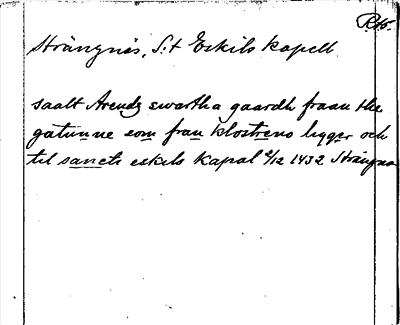 Rtb.
Strängnäs, S:t Eskils kapell
saalt Arendz swartha gaardh fraan the
gatunne som fran klostreno ligger och
til sancte eskils kapal 2/12 1432 Strängnäs